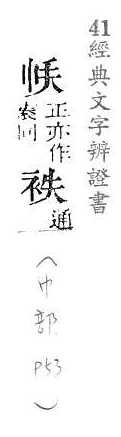 41經典文字辨證書
帙正亦作袠同袟通
(巾部 P53)